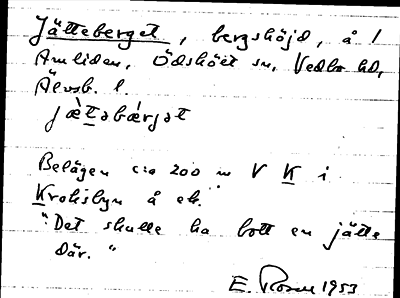 Jätteberget, bergshöjd, å 1
Amliden, Ödskölt sn, Vedbo hd,
Älvsb. l.
jæ̀təbærjət
Belägen c:a 200 m V K i
Kroksbyn å ek.
"Det skulle ha bott en jätte
där."
E. Rosen 1953